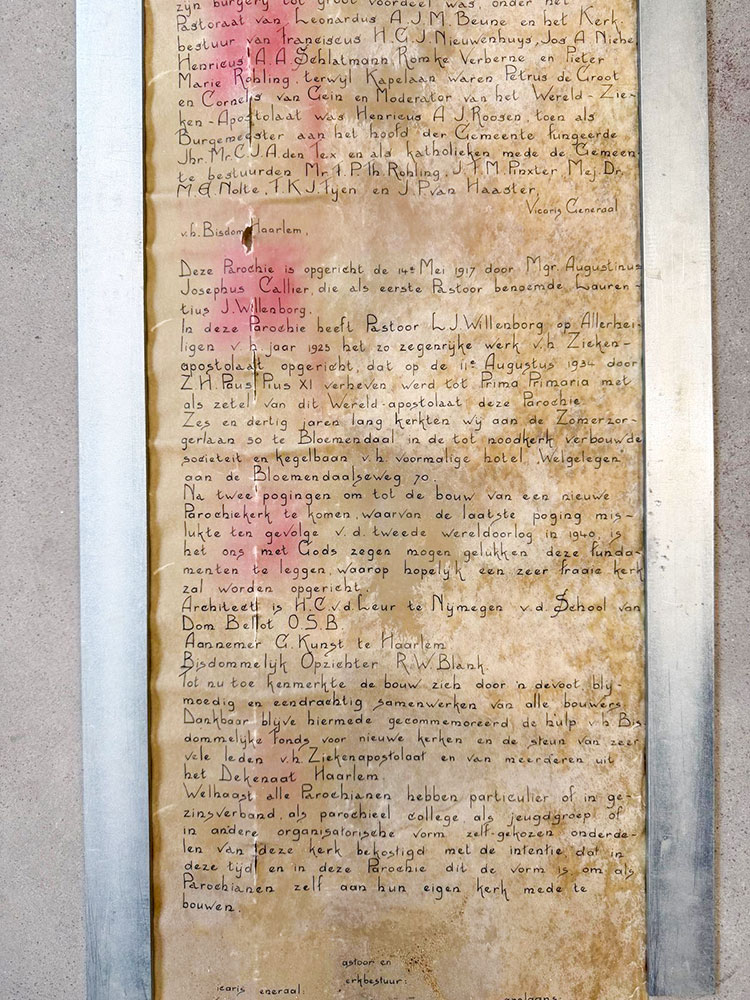 zijn burgery tot groot voordeel was, onder het
Pastoraat van Leonardus A.J.M. Beune en het Kerk-
bestuur van Franciscus H.C.J Nieuwenhuys, Jos. A Niehe
Henricus A.A. Schlatmann Romke Verberne en Pieter
Marie Röhling, terwyl Kapelaan waren Petrus de Groot
en Cornelis van Gein en Moderator van het Wereld-Zie-
ken-Apostolaat was Henricus A J. Roosen, toen als
Burgemeester aan het hoofd der Gemeente fungeerde
Jhr. Mr. C.J.A. den Tex en als katholieken mede de Gemeen-
te bestuurden Mr. F. P.Th. Röhling, J.F.M. Pinxter Mej. Dr.
M.E. Nolte, F.K.J. Fyen en J.P. van Haaster,
Vicaris Generaal
v.h. Bisdom Haarlem,
Deze Parochie is opgericht de 14e Mei 1917 door Mgr. Augustinus
Josephus Callier, die als eerste Pastoor benoemde Lauren-
tius J. Willenborg.
In deze Parochie heeft Pastoor L.J. Willenborg op Allerhei-
ligen v.h. jaar 1925 het zo zegenrijke werk v.h Zieken-
apostolaat opgericht, dat op de 11e Augustus 1934 door
Z.H. Paus Pius XI verheven werd tot Prima Primaria met
als zetel van dit Wereld-apostolaat deze Parochie.
Zes en dertig jaren lang kerkten wy aan de Zomerzor-
gerlaan 50 te Bloemendaal in de tot noodkerk verbouwde
societeit en kegelbaan v.h. voormalige hotel „Welgelegen"
aan de Bloemendaalseweg 70.
Na twee pogingen om tot de bouw van een nieuwe
Parochiekerk te komen, waarvan de laatste poging mis-
lukte ten gevolge v.d. tweede wereldoorlog in 1940, is
het ons met Gods zegen mogen gelukken deze funda-
menten te leggen, waarop hopelyk een zeer fraaie kerk
zal worden opgericht.
Architect is H.C.v.d. Leur te Nijmegen v.d. School van
Dom Bellot O.S.B.
Aannemer C. Kunst te Haarlem
Bisdommelyk Opzichter R.W. Blank.
Tot nu toe kenmerkte de bouw zich door 'n devoot, blij-
moedig en eendrachtig samenwerken van alle bouwers.
Dankbaar blyve hiermede gecommemoreerd, de hulp v.h Bis-
dommelijke Fonds voor nieuwe kerken en de steun van zeer
vele leden v.h. Ziekenapostolaat en van meerderen uit
het Dekenaat Haarlem.
Welhaast alle Parochianen hebben particulier of in ge-
zinsverband, als parochieel college, als jeugdgroep of
in andere organisatorische vorm zelf-gekozen onderde-
len van deze kerk bekostigd met de intentie dat in
deze tijd en in deze Parochie dit de vorm is, om als
Parochianen zelf aan hun eigen kerk mede te
bouwen.
astoor en
erkbestuur:
icaris eneraal:
apelaans: